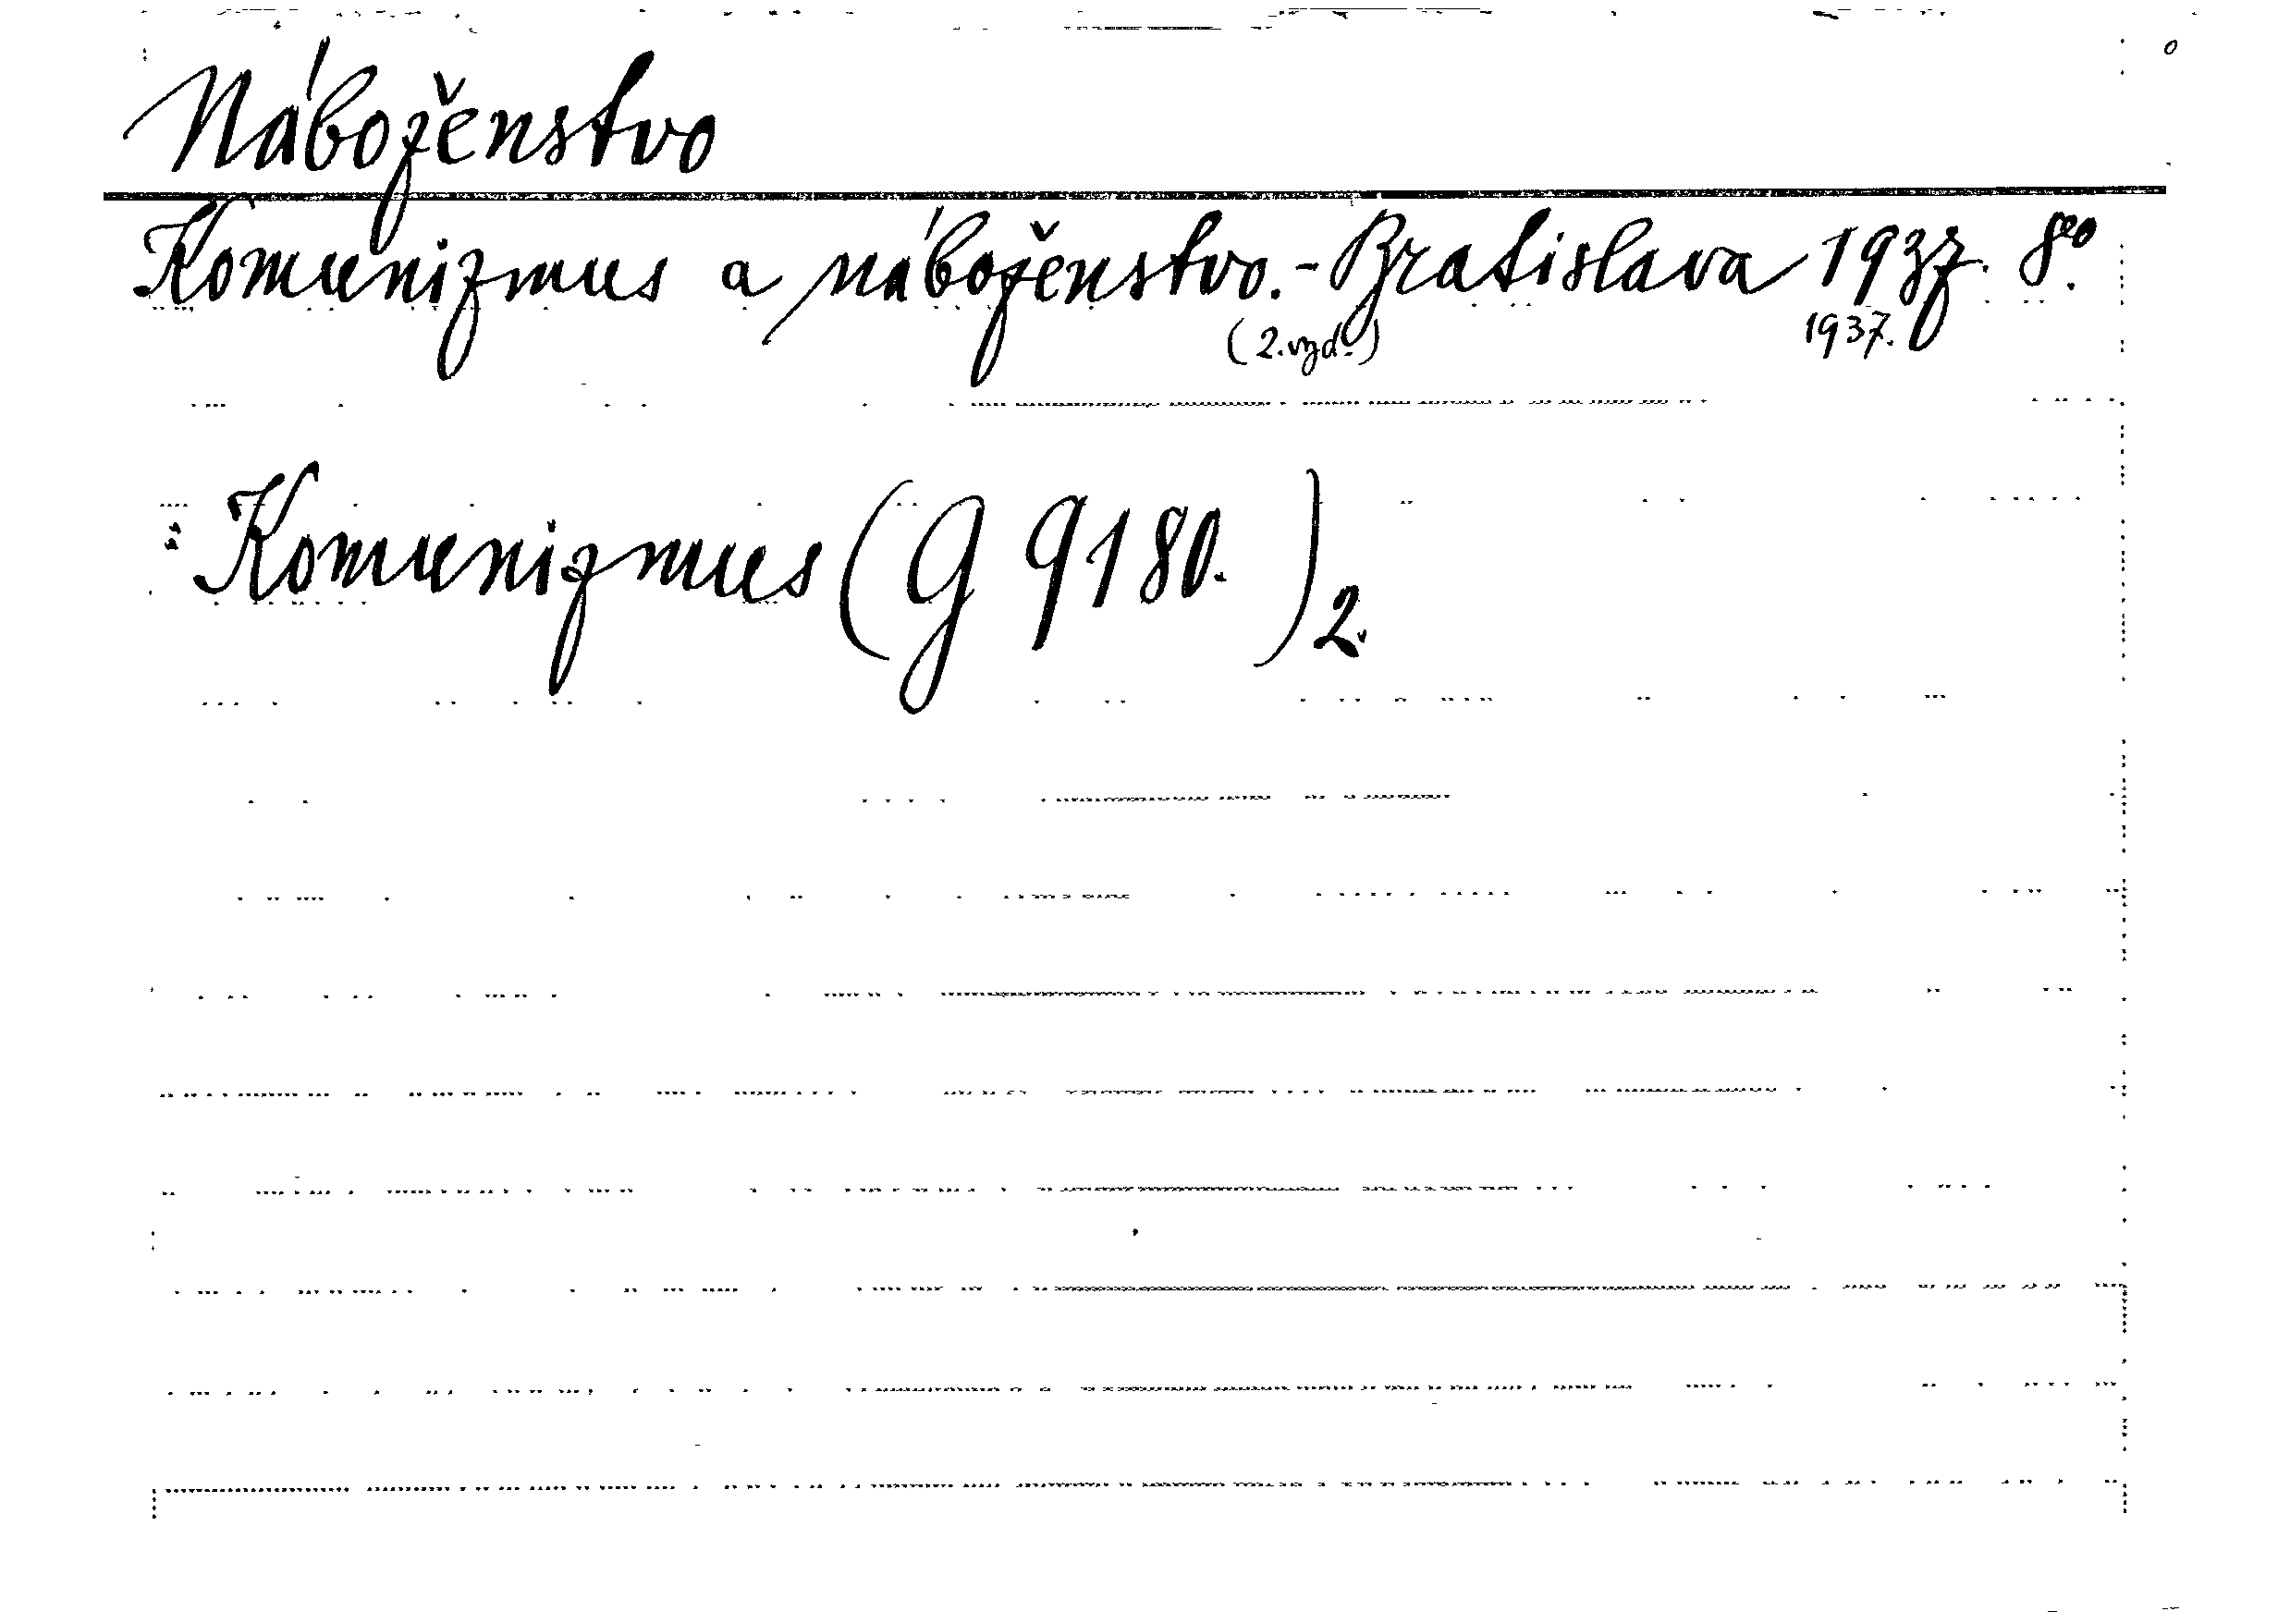 Náboženstvo
Komunizmus a náboženstvo. - Bratislava 1937. 8°.
(2. vyd.) 1937.
: Komunizmus (G 9180. )2.